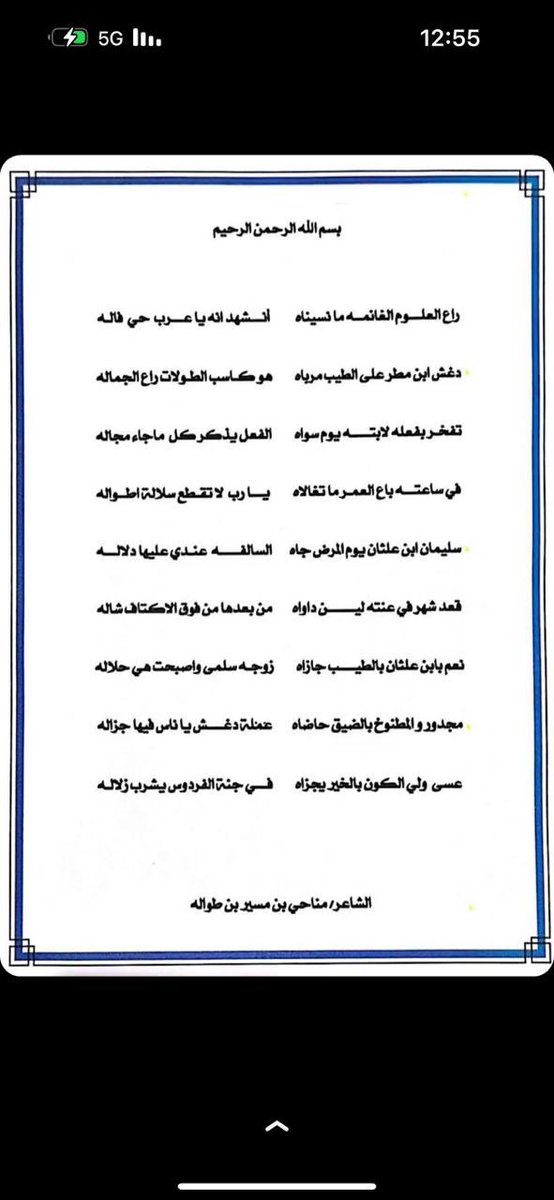 5G 12:55
بسم الله الرحمن الرحيم
راع العلوم الغانمه ما نسيناه أنشهد انه يا عرب حي فاله
دغش ابن مطر على الطيب مرباه هو كاسب الطولات راع الجماله
تفخر بفعله لابته يوم سواه الفعل يذكر كل ماجاء مجاله
في ساعته باع العمر ما تغالاه يا رب لا تقطع سلالة اطواله
سليمان ابن علثان يوم المرض جاه السالفه عندي عليها دلاله
قعد شهر في عنته لين داواه من بعدها من فوق الاكتاف شاله
نعم بابن علثان بالطيب جازاه زوجه سلمى واصبحت هي حلاله
مجدور والمطنوخ بالضيق حاضاه عملة دغش يا ناس فيها جزاله
عسى ولي الكون بالخير يجزاه في جنة الفردوس يشرب زلاله
الشاعر/ مناحي بن مسير بن طواله